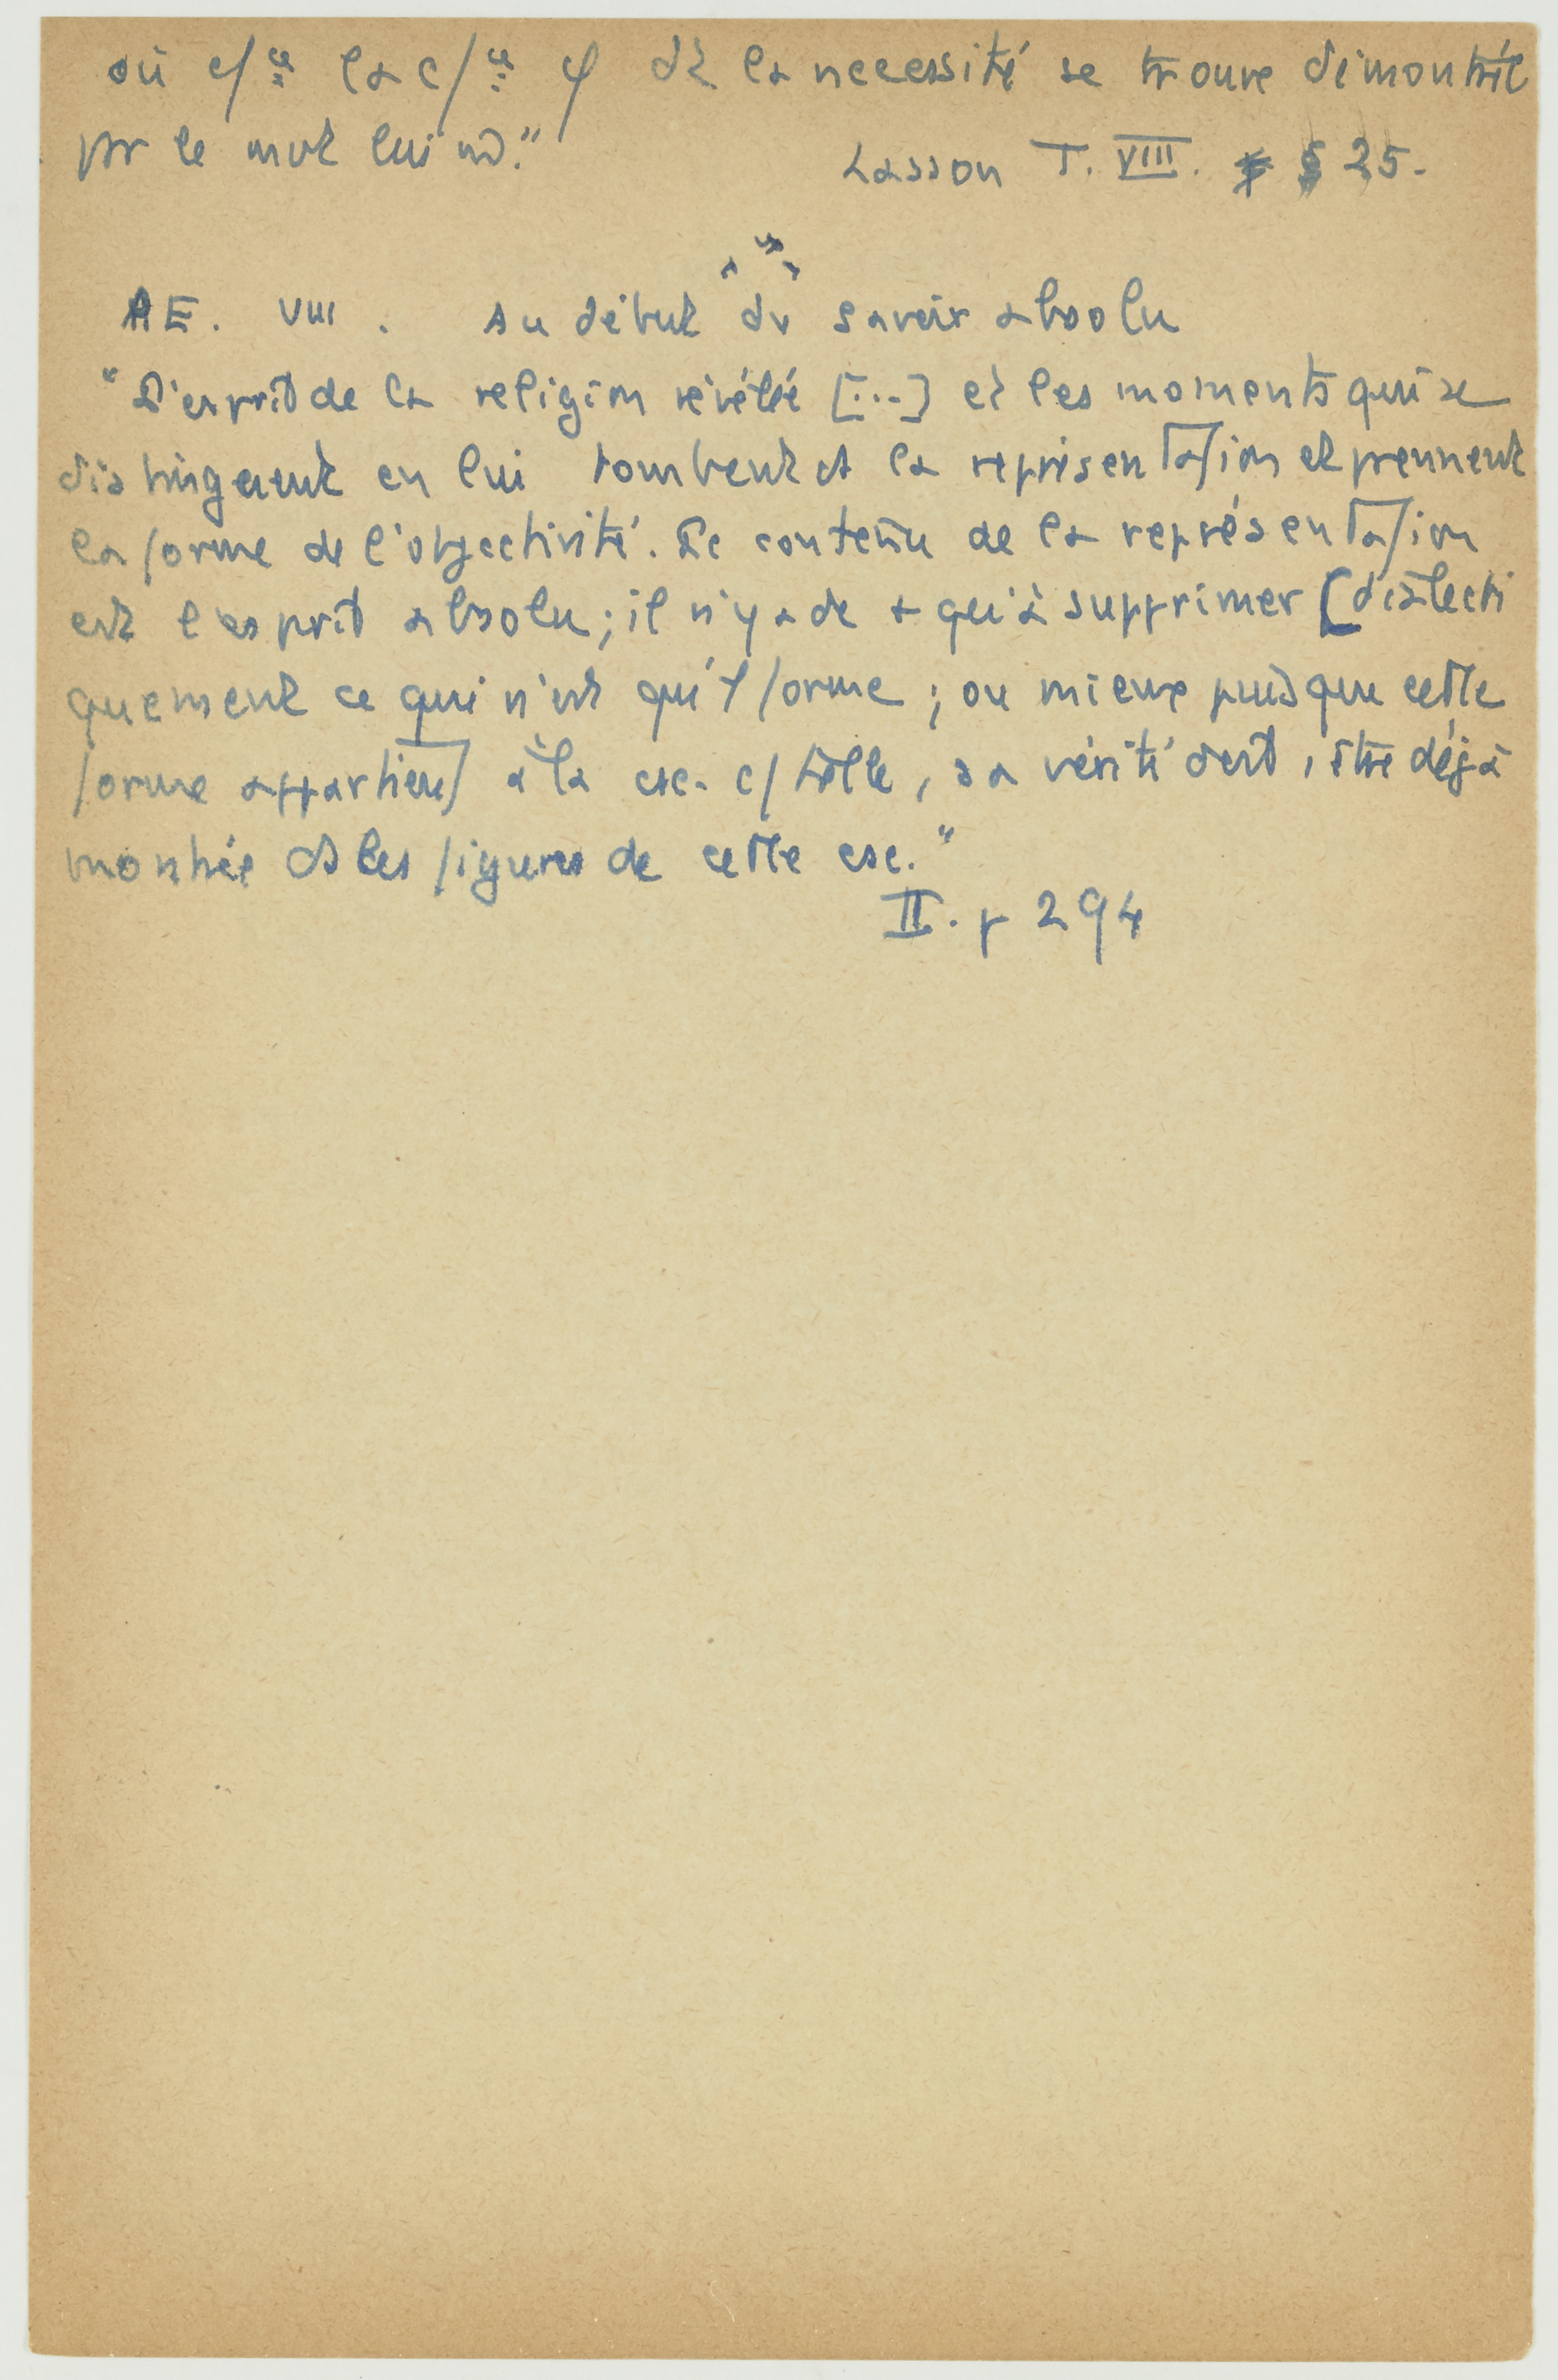 où c/ce la c/ce φ dt la necessité se trouve démontrée
pr le mvt lui m̂."
Lasson T. VIII. § 25.
AE. VIII. Au début du savoir absolu
"L'esprit de la religion révélée [...] et les moments qui se
distinguent en lui tombent ds la représentation et prennent
la forme de l'objectivité. Le contenu de la représentation
est l'esprit absolu ; il n'y a de + qu'à supprimer [dialecti
quement ce qui n'est qu' forme ; ou mieux puisque cette
forme appartient à la csc. c/ telle, sa vérité doit, être déjà
montrée ds les figures de cette csc."
II. p 294